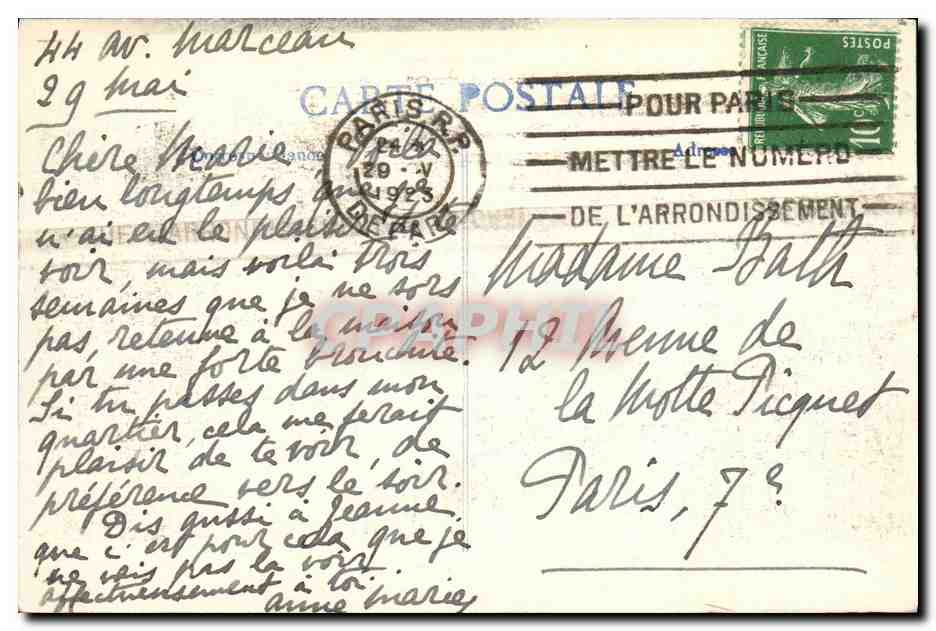 44 av. Marceau
29 mai
CARTE POSTALE
Chère Marie, Voilà
bien longtemps que je
n'ai eu le plaisir de te
voir, mais voilà trois
semaines que je ne sors
pas, retenue à la maison
par une forte bronchite.
Si tu passes dans mon
quartier, cela me ferait
plaisir de te voir, de
préférence vers le soir.
Dis aussi à Jeanne
que c'est pour cela que je
ne vais pas la voir
affectueusement à toi
Anne Marie
PARIS R.P.
29 - V
1923
DEPART
POUR PARIS
METTRE LE NUMERO
DE L'ARRONDISSEMENT
POSTES
10c
Adresse
Madame Bath
12 Avenue de
la Motte Picquet
Paris, 7e
CPAPHIL